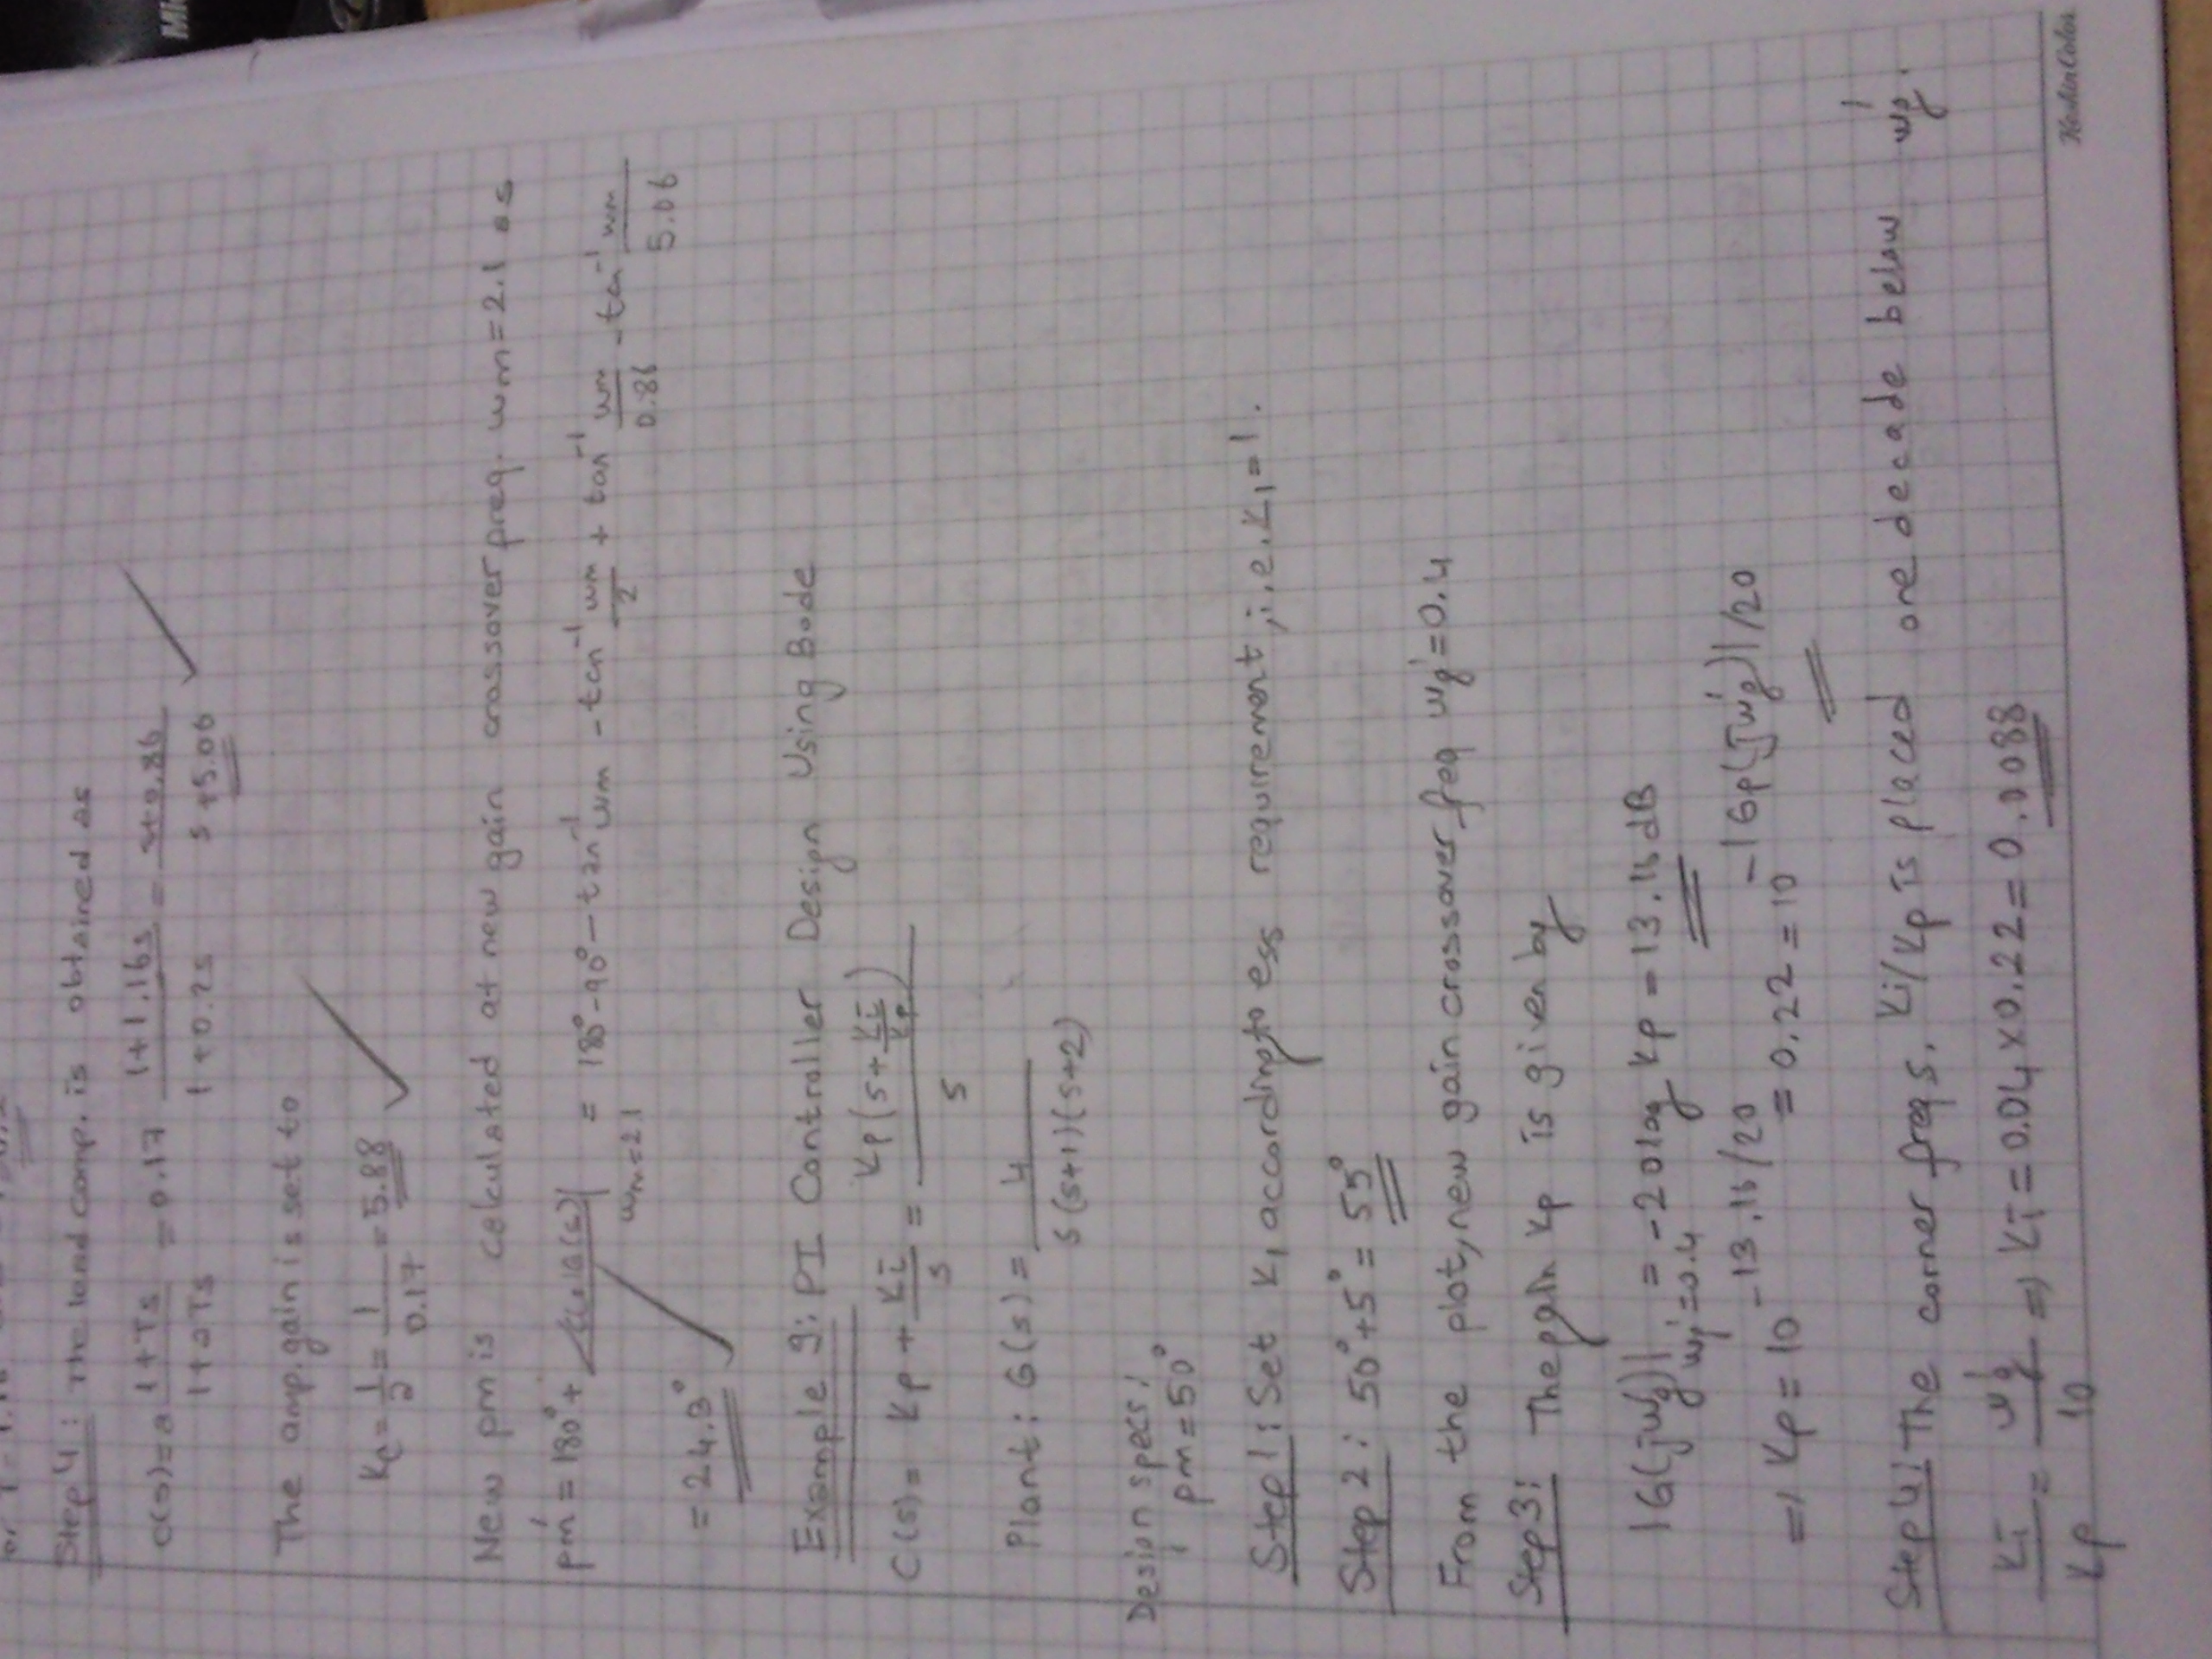 Step 4: The lead comp. is obtained as
C(s)=a 1+Ts/1+aTs = 0.17 1+1.16s/1+0.2s = s+0.86/s+5.06
The amp. gain is set to
Kc = 1/a = 1/0.17 = 5.88
New pm is calculated at new gain crossover freq. wm=2.1 as
pm' = 180°+ | wm=2.1 = 180°-90°-tan⁻¹wm -tan⁻¹ wm/2 + tan⁻¹ wm/0.86 -tan⁻¹ wm/5.06
= 24.3°
Example 9: PI Controller Design Using Bode
C(s)= Kp + Ki/s = Kp(s+Ki/Kp)/s
Plant: G(s)= 4/s(s+1)(s+2)
Design specs:
pm=50°
Step 1: Set K1 according to ess requirement, i.e. K1=1.
Step 2: 50°+5°=55°
From the plot, new gain crossover freq wg'=0.4
Step 3: The gain Kp is given by
|G(jwg')| wg'=0.4 = -20log Kp = 13.16 dB
=> Kp = 10^-13.16/20 = 0.22 = 10^-|Gp(jwg')|/20
Step 4: The corner freqs. Ki/Kp is placed one decade below wg'.
Ki/Kp = wg'/10 => Ki = 0.04 x 0.22 = 0.0088
KeskinColor